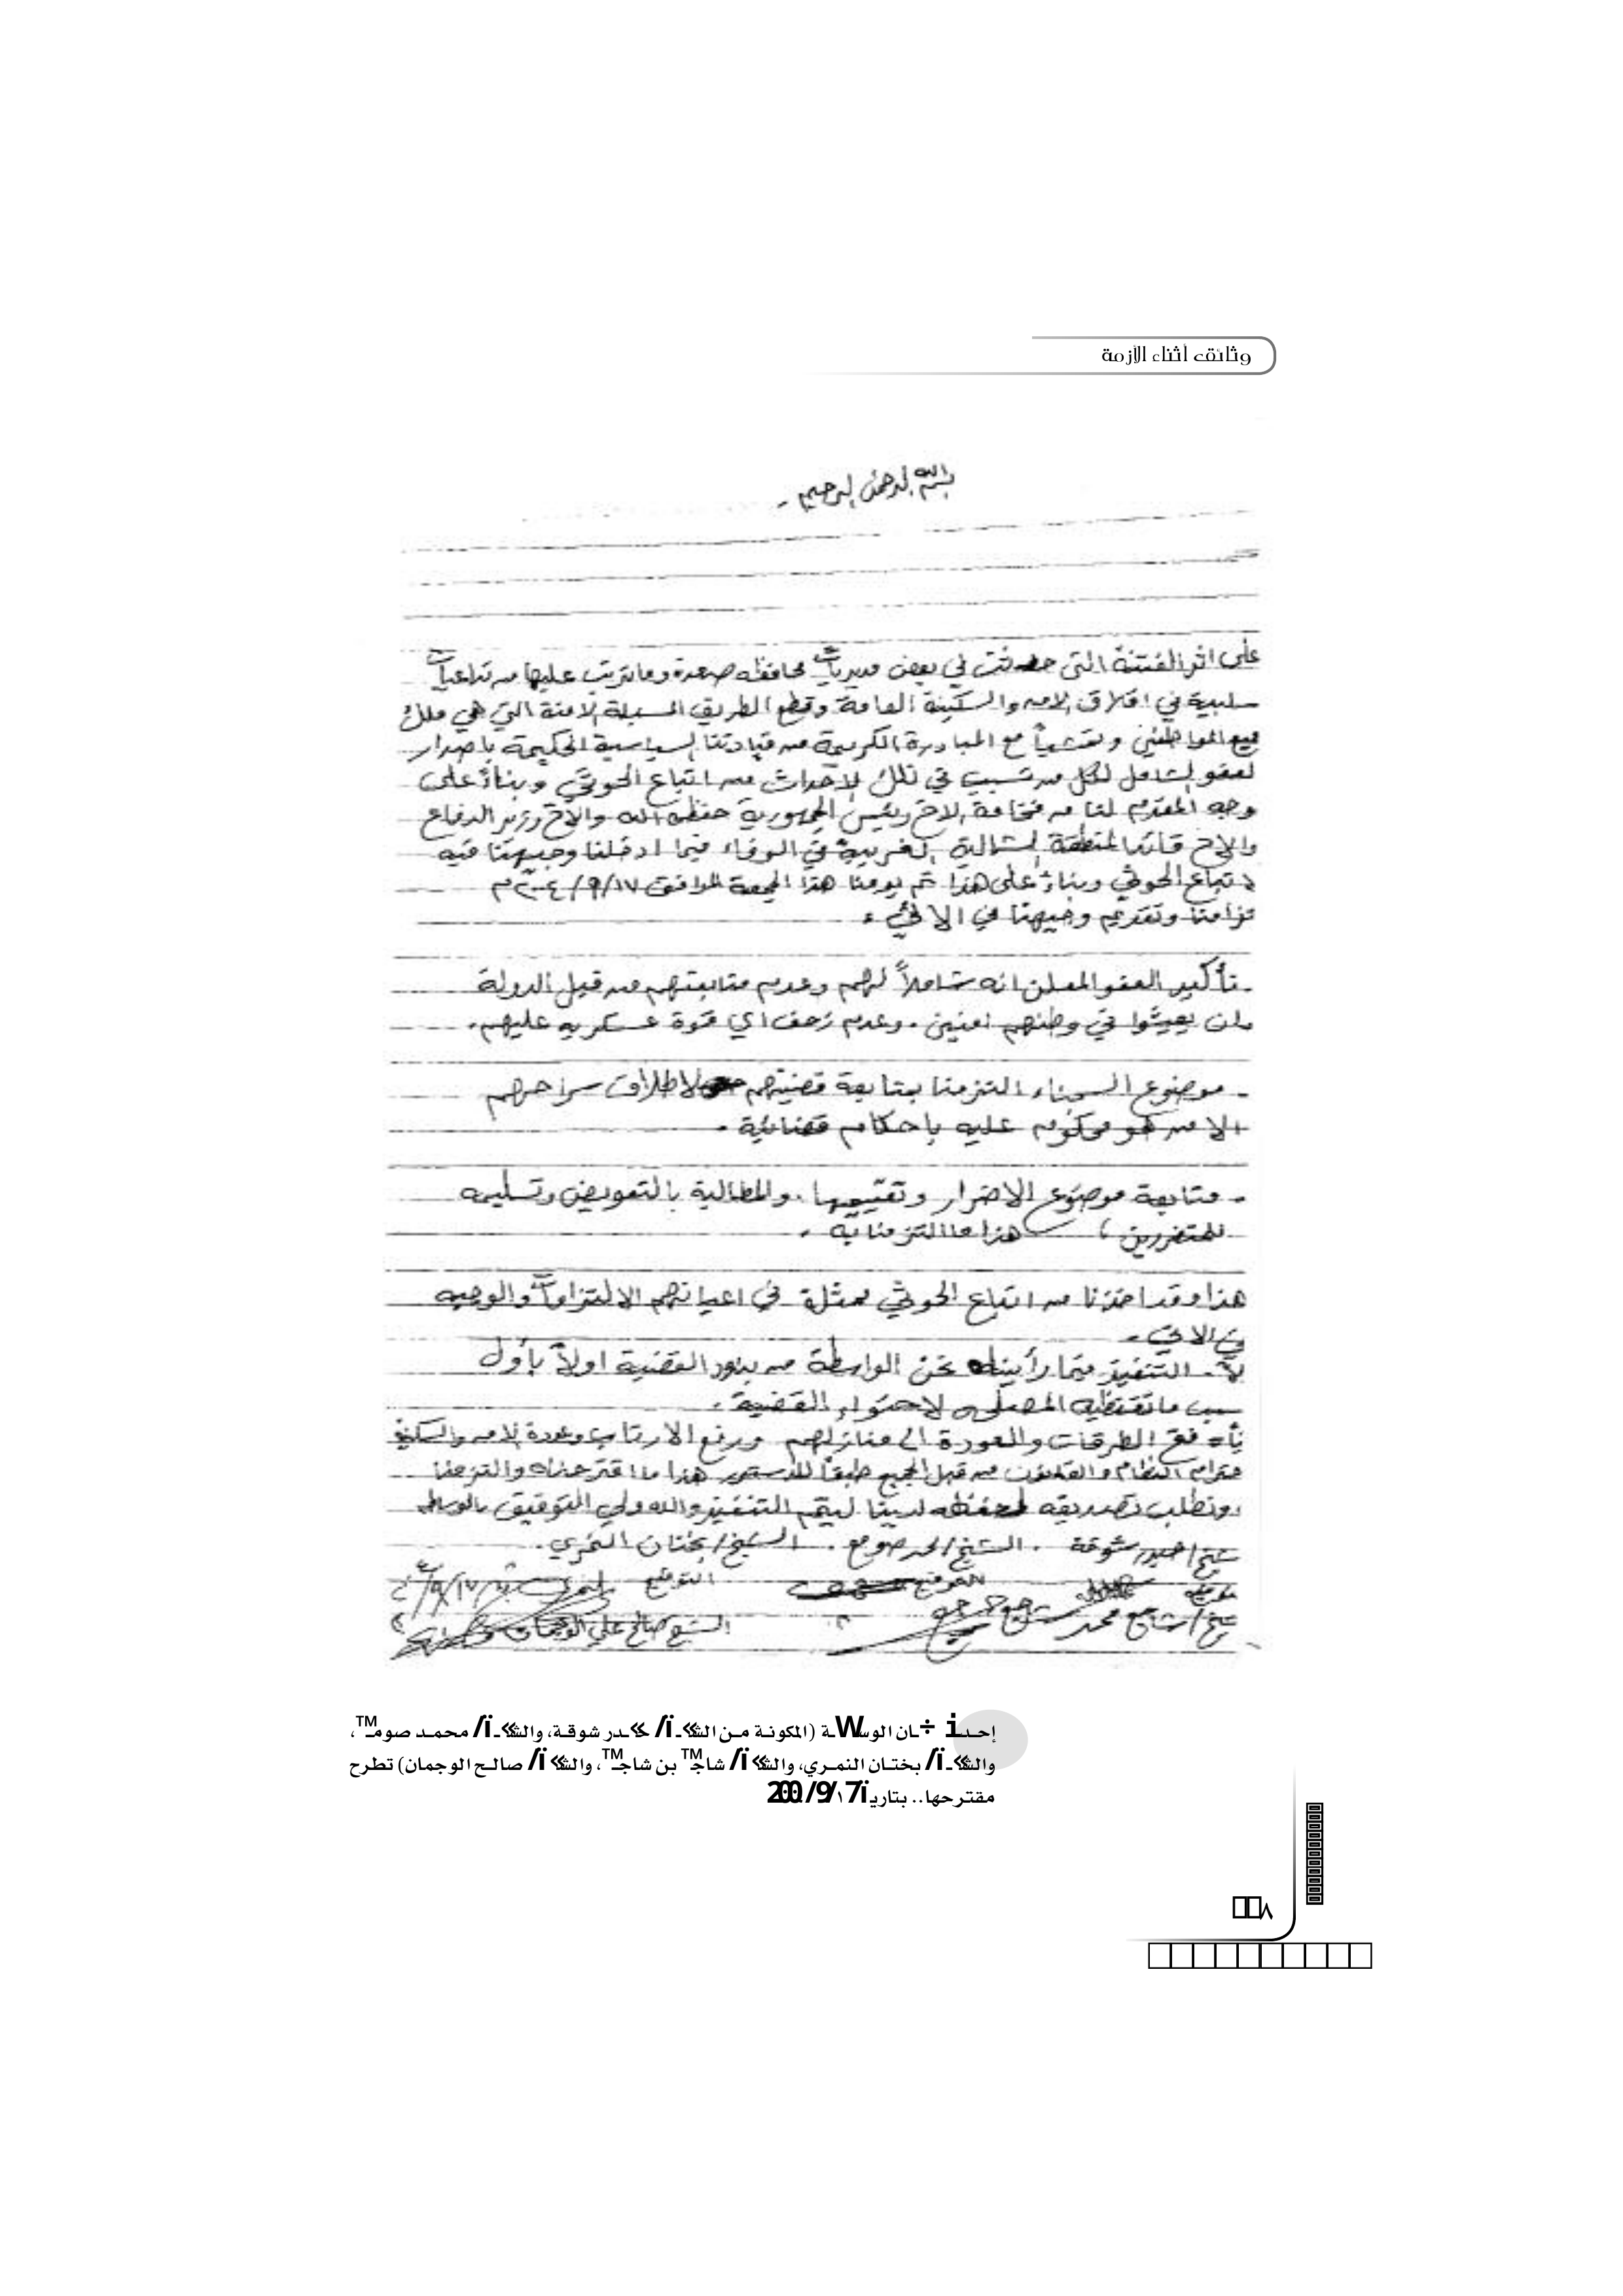 وثائق أثناء الأزمة
بسم الله الرحمن الرحيم -
على اثر الفتنة التي حدثت في بعض مديريات محافظه صعدة وما ترتب عليها من تداعيات
سلبية في اقلاق الامن والسكينة العامة وقطع الطريق المسبلة الامنة التي هي ملك
جميع المواطنين وتمشياً مع المبادرة الكريمة من قيادتنا السياسية الحكيمة باصدار
لعفو الشامل لكل من تسبب في تلك الاحداث من اتباع الحوثي وبناءً على
وجه المقدم لنا من فخامة الاخ رئيس الجمهورية حفظه الله والاخ وزير الدفاع
والاخ قائد المنطقة الشمالية الغربية في الوفاء فيما ادخلنا وجيهتنا فيه
لاتباع الحوثي وبناءً على هذا تم يومنا هذا الجمعة الموافق ١٧/٩/٢٠٠٤م
تزامنا وتقديم وجيهتنا في الاتي :
- تأكيد العفو المعلن انه شاملاً لهم وعدم متابعتهم من قبل الدولة
وان يعيشوا في وطنهم امنين . وعدم زحف اي قوة عسكريه عليهم .
- موضوع السجناء التزمنا بمتابعة قضيتهم لاطلاق سراحهم
الا من هو محكوم عليه باحكام قضائية .
- متابعة موضوع الاضرار وتقييمها . والمطالبة بالتعويض وتسليمه
للمتضررين ، هذا ما التزمنا به .
هذا وقد اخذنا من اتباع الحوثي ممثلة في اعيانهم الالتزامات والوجيه
في الاتي -
لاً - التنفيذ فيما رأيناه نحن الواسطة من بنود القضية اولاً بأول
حسب ما تقتظيه المصلحه لاحتواء القضية .
نياً - فتح الطرقات والعودة الى منازلهم ورفع الارتاب وعودة الامن والسكينة
حترام النظام والقانون من قبل الجميع طبقاً للدستور هذا ما اقترحناه والتزمنا
ونطلب تصديقه لحفظه لدينا ليتم التنفيذ والله ولي التوفيق
شيخ/ حيدر شوقة . الشيخ/ محمد صومع . الشيخ/ بختان النمري .
التوقيع التوقيع
شيخ/ شاجع محمد شاجع
الشيخ صالح علي الوجمان
إحدى ـان الوسـة (المكونة من الشـ/ ـدر شوقة، والشـ/ محمد صومـ،
والشـ/ بختان النمري، والشـ/ شاجـ بن شاجـ، والشـ/ صالح الوجمان) تطرح
مقترحها.. بتاريـ